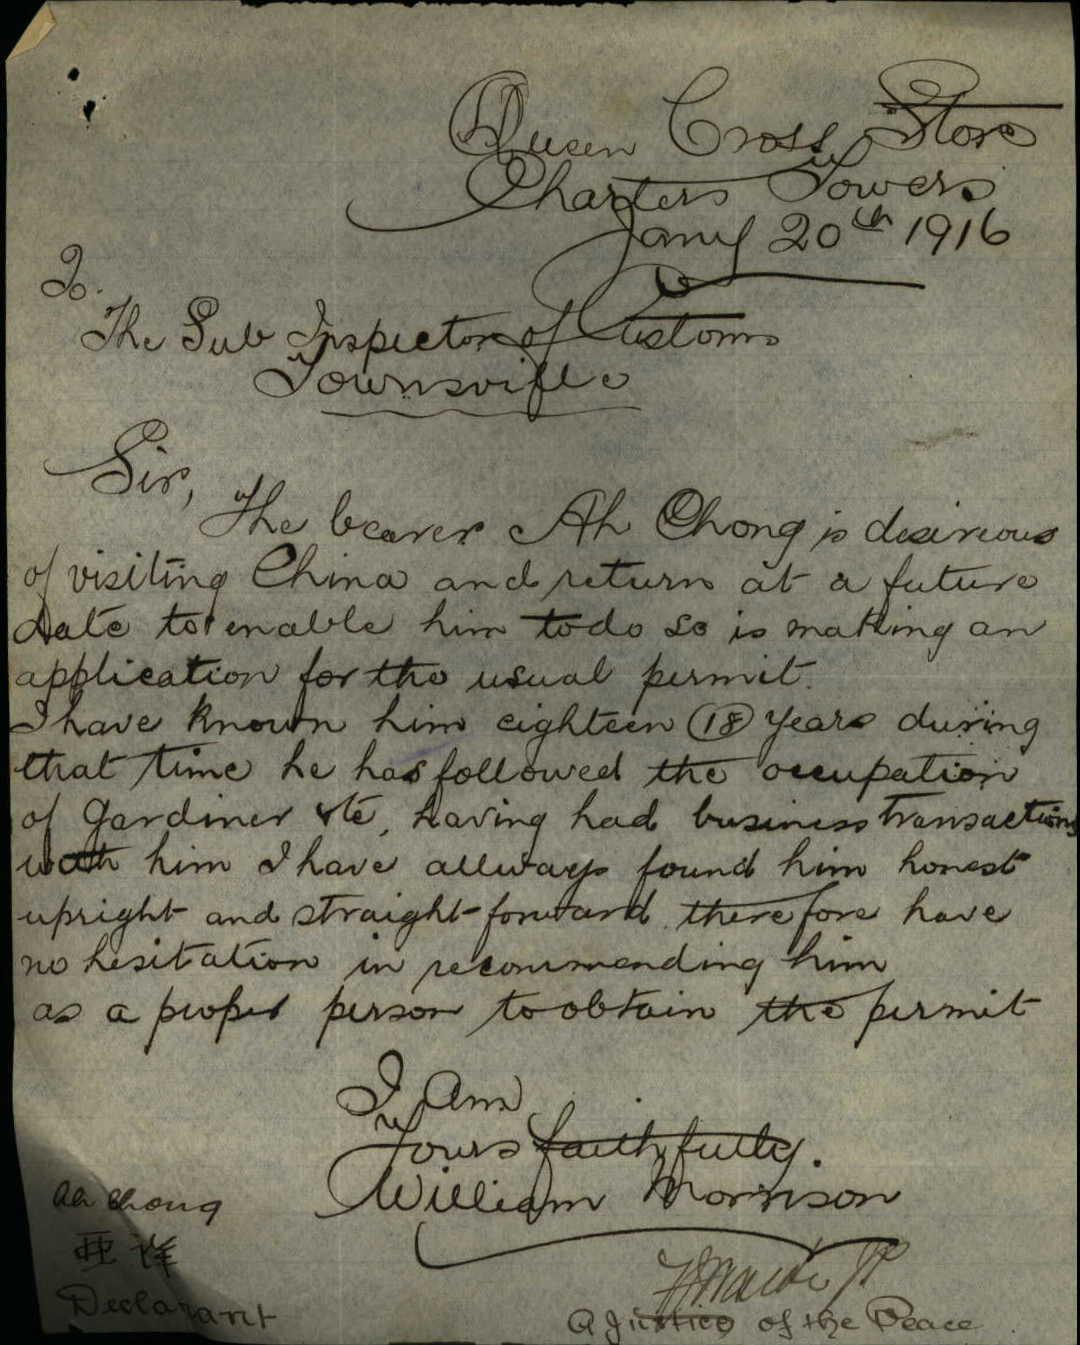 Queen Cross Store
Charters Towers
Jany 20th 1916
To.
The Sub Inspector of Customs
Townsville
Sir,
The bearer Ah Chong is desireous
of visiting China and return at a future
date to enable him to do so is making an
application for the usual permit.
I have known him eighteen (18) years during
that time he has followed the occupation
of Gardiner &tc, having had business transactions
with him I have allways found him honest
upright and straight-forward therefore have
no hesitation in recommending him
as a proper person to obtain the permit
I Am
Yours faithfully.
William Morrison
Ah Chong
亞祥
Declarant
JP
A Justice of the Peace